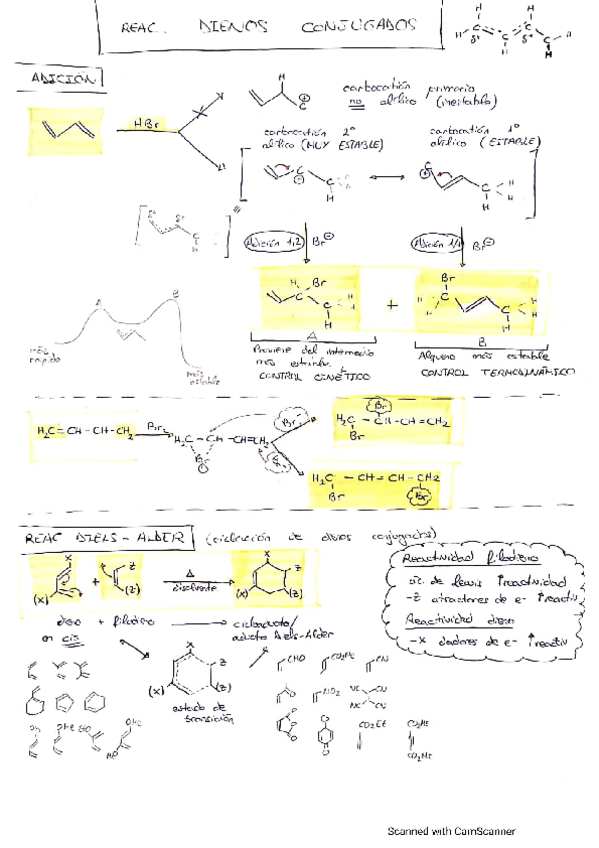 REAC. DIENOS CONJUGADOS
ADICIÓN
HBr
carbocatión primario
no alílico (inestable)
carbocatión 2º
alílico (MUY ESTABLE)
carbocatión 1º
alílico (ESTABLE)
Adición 1,2 Br⊖
Adición 1,4 Br⊖
A
B
más rápido
más estable
Proviene del intermedio
más
CONTROL CINÉTICO
Alqueno más estable
CONTROL TERMODINÁMICO
H₂C=CH-CH-CH₂
Br₂
H₂C-CH-CH=CH₂
Br
Br⁻
H₂C-CH-CH=CH₂
Br
Br
H₂C-CH=CH-CH₂
Br
Br
REAC DIELS-ALDER (ciclación de dienos conjugados)
X Z
(X) + (Z)
Δ
disolvente
X Z
(X) (Z)
dieno + filodieno
en cis
cicloaducto/
aducto Diels-Alder
X Z
(X) (Z)
estado de
transición
Reactividad filodieno
ác. de Lewis ↑reactividad
-Z atractores de e- ↑reactiv
Reactividad dieno
-X dadores de e- ↑reactiv
CHO CO₂Me CN
NO₂ NC CN
NC CN
CO₂Et CO₂Me
CO₂Me
OMe
Scanned with CamScanner